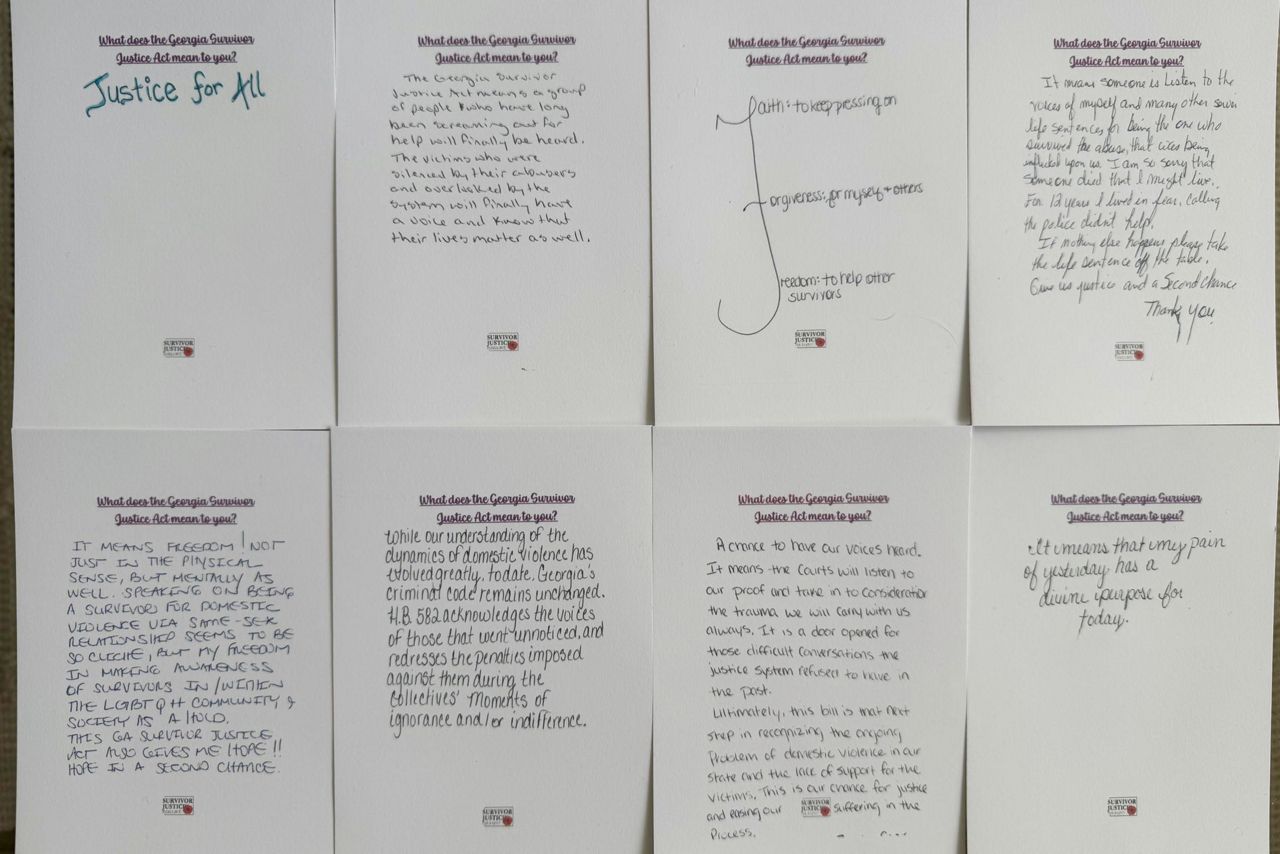 What does the Georgia Survivor
Justice Act mean to you?
Justice for All
SURVIVOR
JUSTICE
What does the Georgia Survivor
Justice Act mean to you?
The Georgia Survivor
Justice Act means a group
of people who have long
been screaming out for
help will finally be heard.
The victims who were
silenced by their abusers
and overlooked by the
system will finally have
a voice and know that
their lives matter as well.
SURVIVOR
JUSTICE
What does the Georgia Survivor
Justice Act mean to you?
Faith: to keep pressing on
Forgiveness: for myself + others
Freedom: to help other
survivors
SURVIVOR
JUSTICE
What does the Georgia Survivor
Justice Act mean to you?
It means someone is Listen to the
voices of myself and many other
life sentences for being the one who
survived the abuse, that being
inflicted upon us. I am so sorry that
someone died that I might live.
For 12 years I lived in fear. Calling
the police didn't help.
If nothing else happens please take
the life sentence off the table.
Give us justice and a Second Chance
Thank you.
SURVIVOR
JUSTICE
What does the Georgia Survivor
Justice Act mean to you?
IT MEANS FREEDOM! NOT
JUST IN THE PHYSICAL
SENSE, BUT MENTALLY AS
WELL. SPEAKING ON BEING
A SURVIVOR FOR DOMESTIC
VIOLENCE VIA SAME-SEX
RELATIONSHIP SEEMS TO BE
SO CLICHE, BUT MY FREEDOM
IN MAKING AWARENESS
OF SURVIVORS IN/WITHIN
THE LGBTQ++ COMMUNITY &
SOCIETY AS A HOLD.
THIS GA SURVIVOR JUSTICE
ACT ALSO GIVES ME HOPE!!
HOPE IN A SECOND CHANCE.
SURVIVOR
JUSTICE
What does the Georgia Survivor
Justice Act mean to you?
While our understanding of the
dynamics of domestic violence has
evolved greatly, to date, Georgia's
criminal code remains unchanged.
H.B. 582 acknowledges the voices
of those that went unnoticed, and
redresses the penalties imposed
against them during the
Collectives' moments of
ignorance and/or indifference.
SURVIVOR
JUSTICE
What does the Georgia Survivor
Justice Act mean to you?
A chance to have our voices heard.
It means the Courts will listen to
our proof and take in to consideration
the trauma we will carry with us
always. It is a door opened for
those difficult conversations the
justice system refused to have in
the past.
Ultimately, this bill is that next
step in recognizing the ongoing
Problem of domestic violence in our
state and the lack of support for the
victims. This is our chance for justice
and easing our suffering in the
Process.
SURVIVOR
JUSTICE
What does the Georgia Survivor
Justice Act mean to you?
It means that my pain
of yesterday has a
divine purpose for
today.
SURVIVOR
JUSTICE